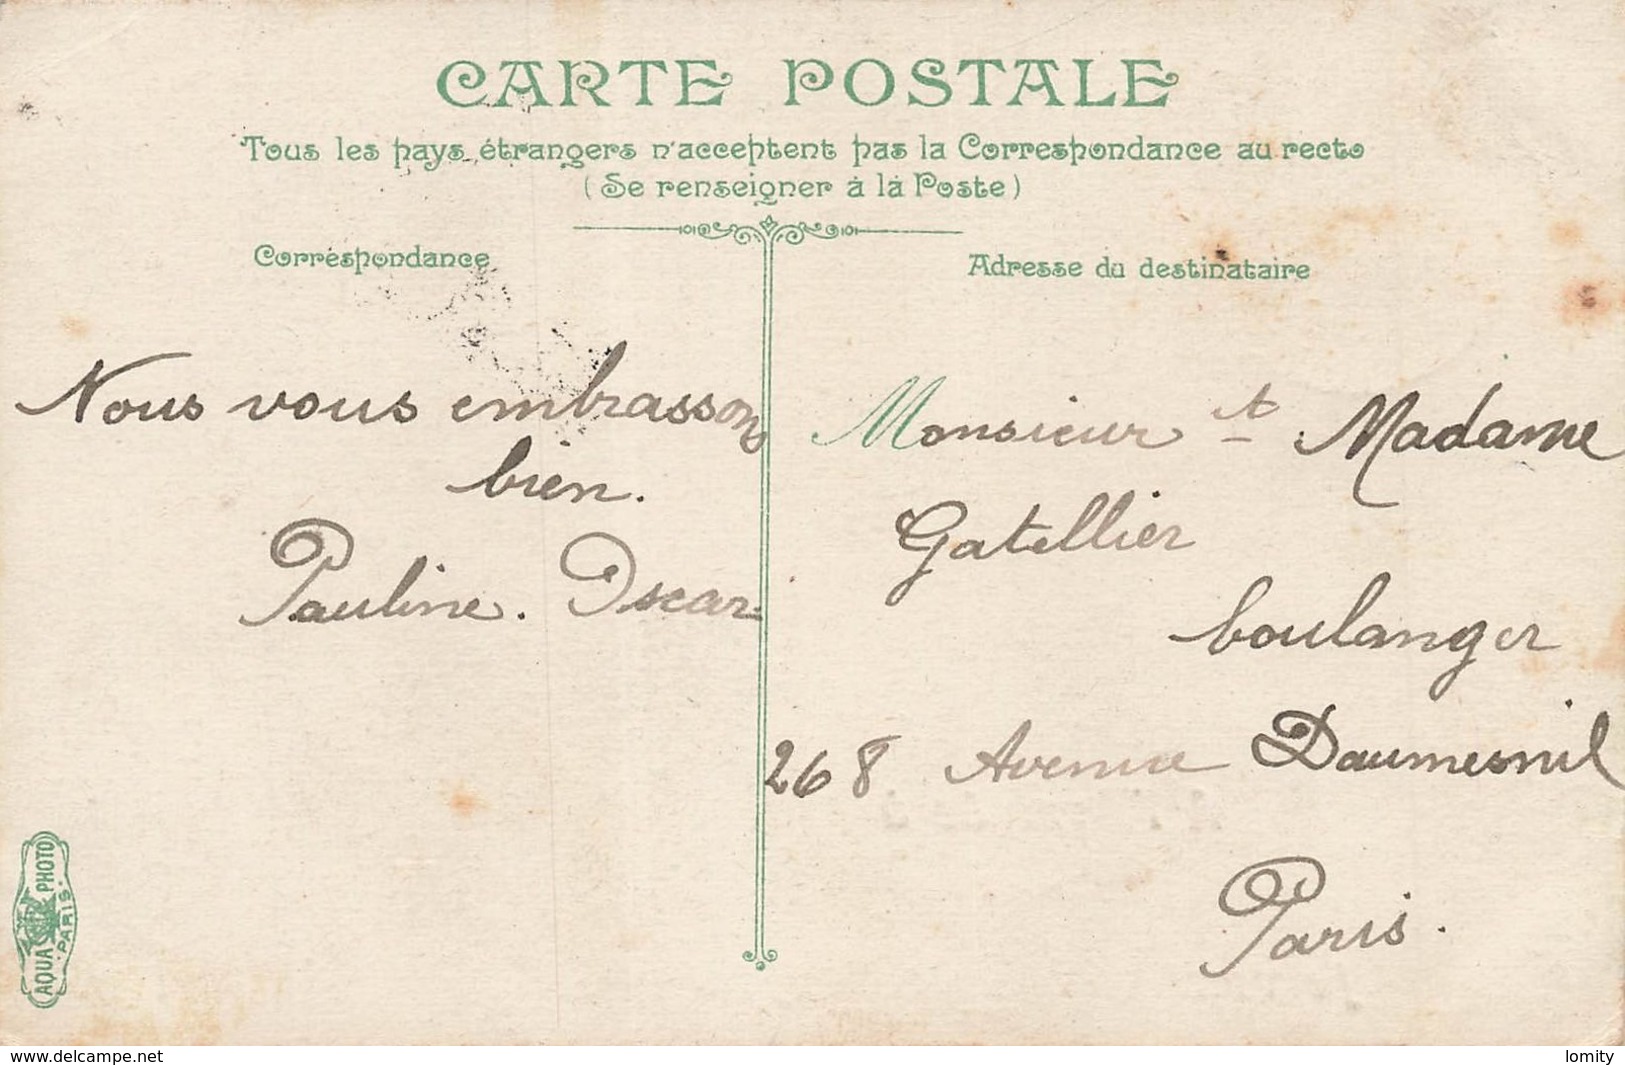 CARTE POSTALE
Tous les pays étrangers n'acceptent pas la Correspondance au recto
(Se renseigner à la Poste)
Correspondance
Nous vous embrassons
bien.
Pauline. Oscar
Adresse du destinataire
Monsieur et Madame
Gatellier
boulanger
268 Avenue Daumesnil
Paris.
AQUA PHOTO
PARIS
www.delcampe.net
lomity